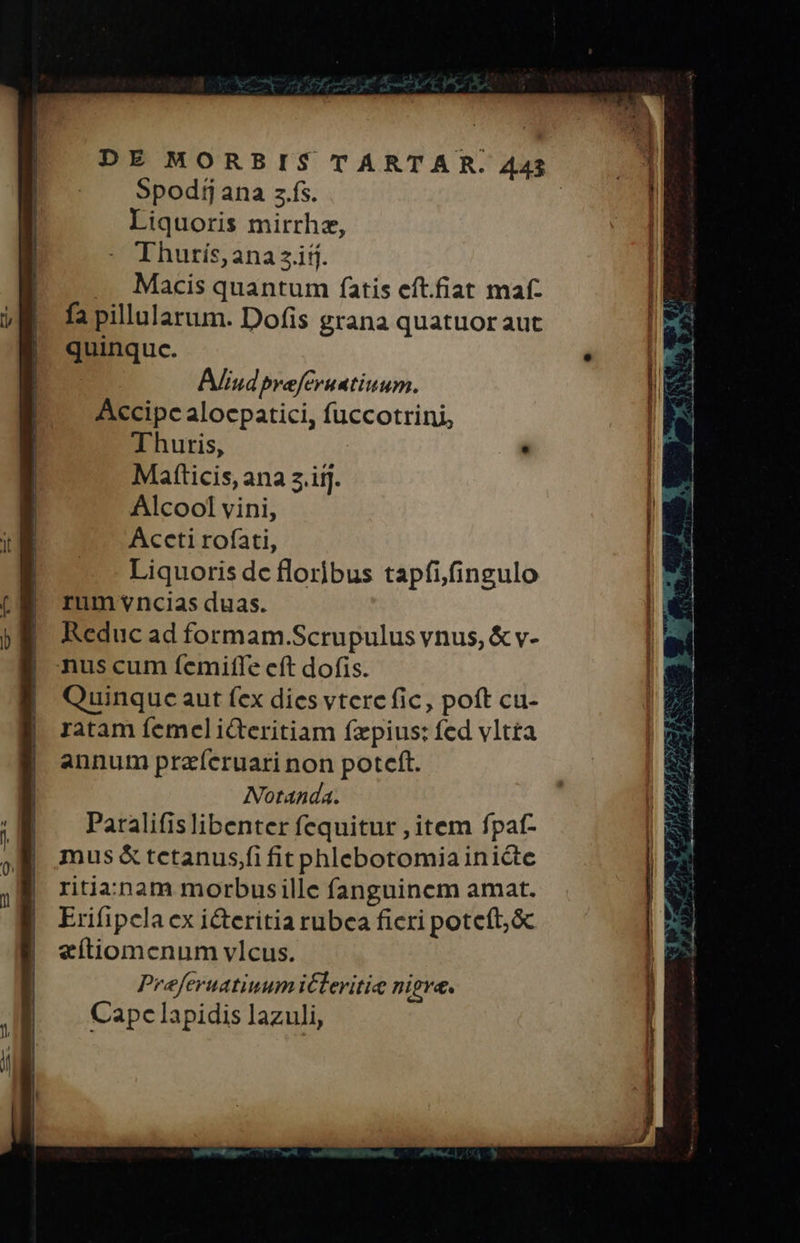 DE MORBIS TARTAR. 443
Spodij ana ʒ.ſs.
Liquoris mirrhæ,
Thuris, ana ʒ.iij.
Macis quantum ſatis eſt.fiat maſ-
ſa pillularum. Doſis grana quatuor aut
quinque.
Aliud præſeruatiuum.
Accipe aloepatici, ſuccotrini,
Thuris,
Maſticis, ana ʒ.iij.
Alcool vini,
Aceti roſati,
Liquoris de floribus tapſi, ſingulo
rum vncias duas.
Reduc ad formam. Scrupulus vnus, & v-
nus cum ſemiſſe eſt doſis.
Quinque aut ſex dies vtere ſic, poſt cu-
ratam ſemel icteritiam ſæpius: ſed vltra
annum præſeruari non poteſt.
Notanda.
Paraliſis libenter ſequitur, item ſpaſ-
mus & tetanus, ſi fit phlebotomia in icte
ritia: nam morbus ille ſanguinem amat.
Eriſipela ex icteritia rubea fieri poteſt, &
æſtiomenum vlcus.
Præſeruatiuum icteritiæ nigræ.
Cape lapidis lazuli,